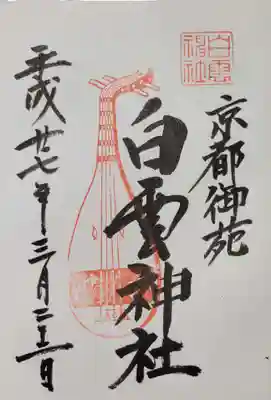 京都御苑
白雲神社
平成廿七年三月二十一日
白雲神社